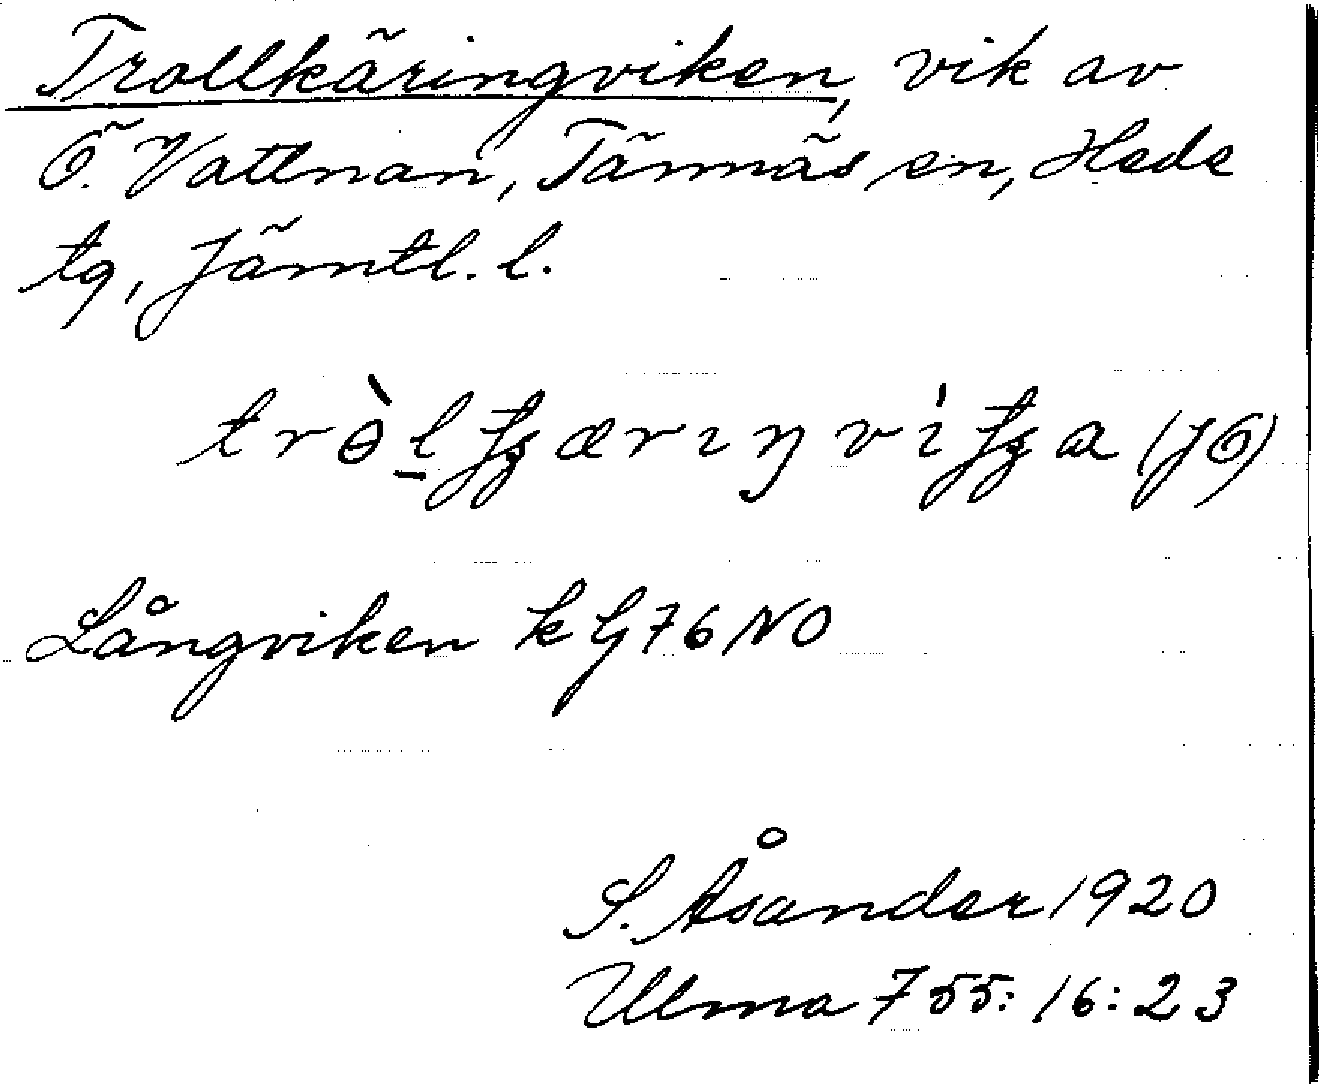 Trollkäringviken, vik av
Ö. Vattnan, Tännäs sn, Hede
tg, Jämtl. l.
(JÖ)
Långviken k G76NO
S. Åsander 1920
Ulma 755:16:23